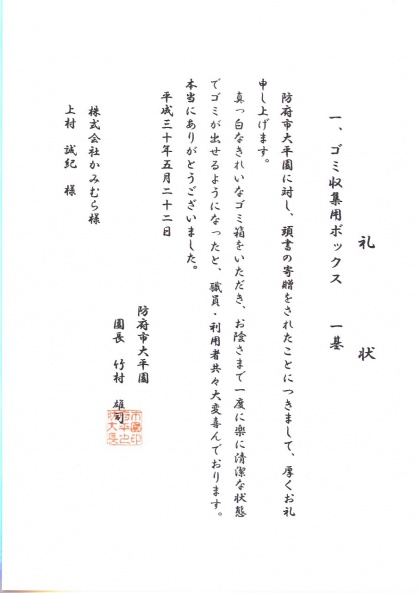 礼　状
一、ゴミ収集用ボックス　一基
防府市大平園に対し、頭書の寄贈をされたことにつきまして、厚くお礼
申し上げます。
真っ白なきれいなゴミ箱をいただき、お陰さまで一度に楽に清潔な状態
でゴミが出せるようになったと、職員・利用者共々大変喜んでおります。
本当にありがとうございました。
平成三十年五月二十二日
防府市大平園
園長　竹村　雄司
株式会社かみむら様
上村　誠紀　様